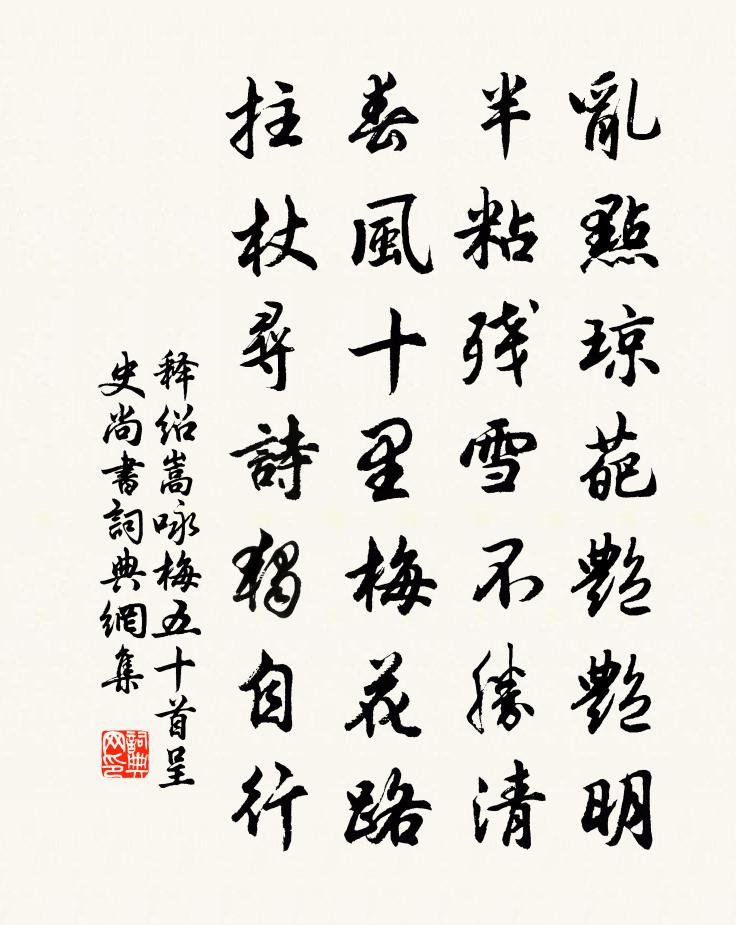 亂點瓊葩艷艷明
半粘残雪不勝清
春風十里梅花路
拄杖尋詩獨自行
释绍嵩咏梅五十首呈
史尚書詞典網集
詞典
网印